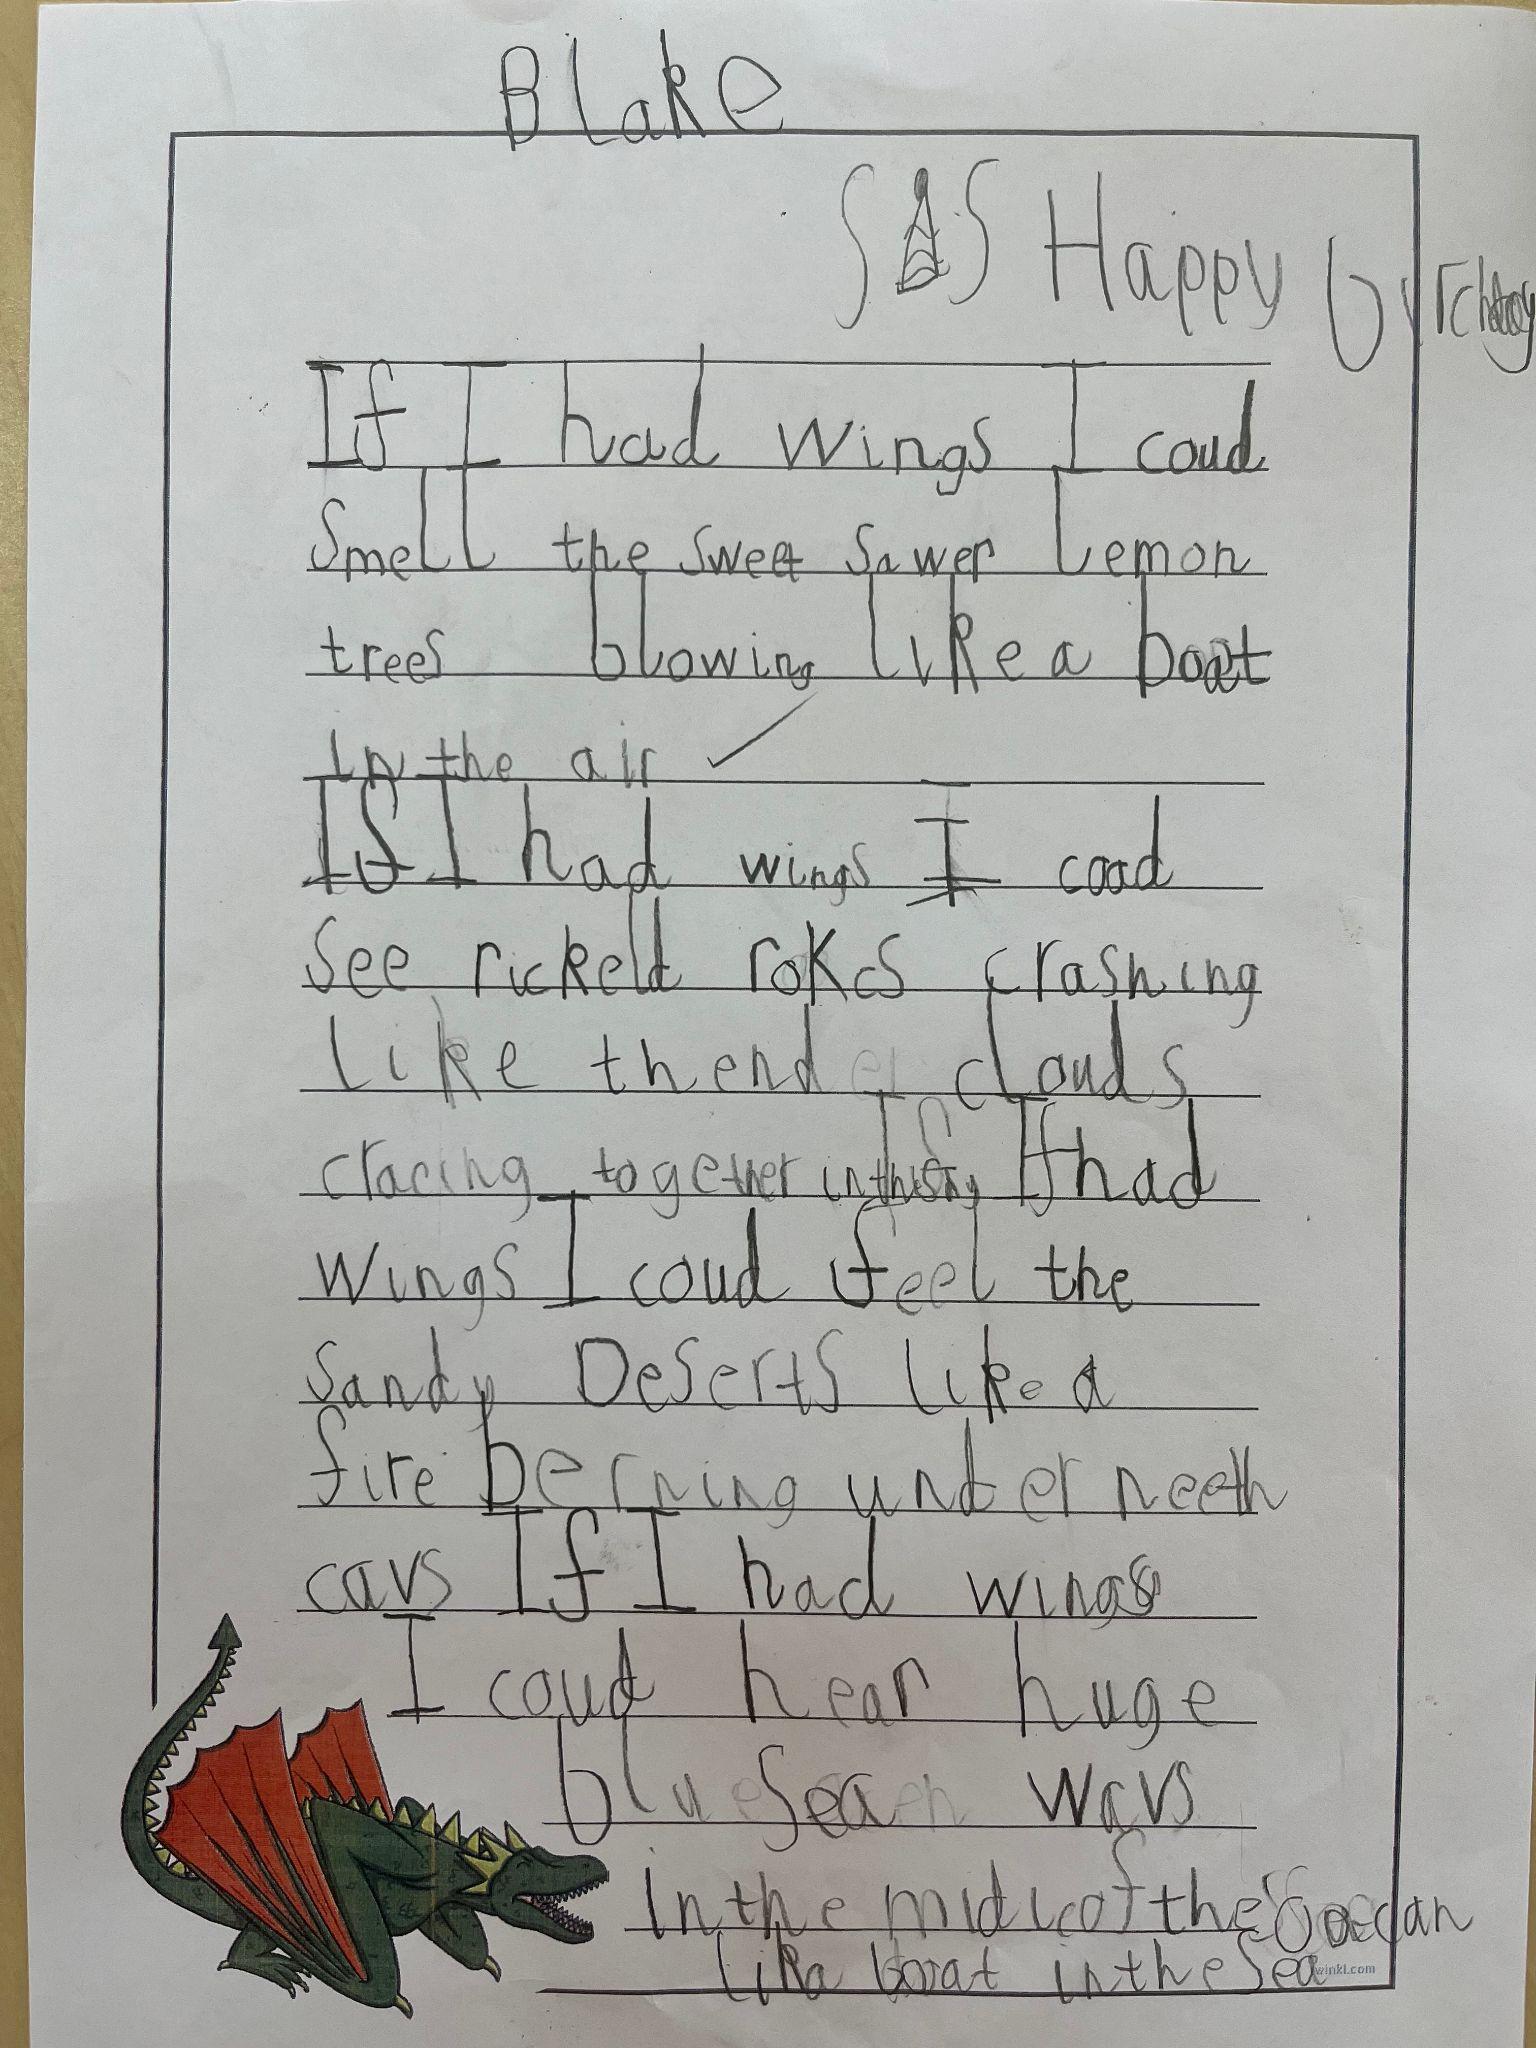 Blake
Happy
If I had wings I coud
smell the sweet sawer lemon
trees blowing like a boat
in the air
If I had wings I coud
see rickeld rokcs crashing
like thender clouds
cracing together in the sky If I had
wings I coud feel the
sandy Deserts like a
fire berning underneeth
cavs If I had wings
I coud hear huge
blue sea wavs
in the midlcof the Ooecan
lika boat in the sea
twinkl.com